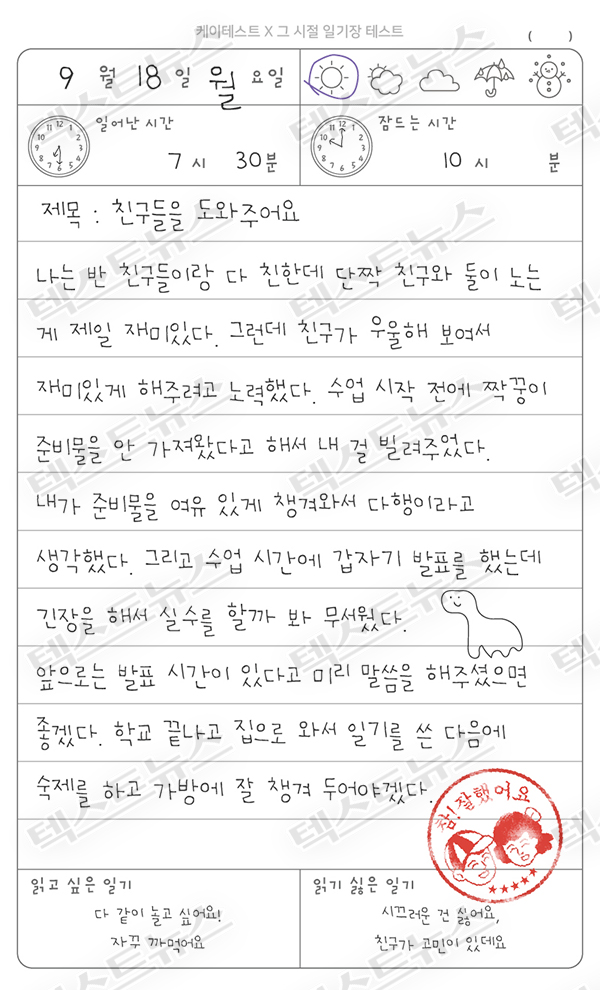 케이테스트 X 그 시절 일기장 테스트
( )
9 월 18 일 월 요일
일어난 시간
7 시 30 분
잠드는 시간
10 시 분
제목 : 친구들을 도와주어요
나는 반 친구들이랑 다 친한데 단짝 친구와 둘이 노는
게 제일 재미있다. 그런데 친구가 우울해 보여서
재미있게 해주려고 노력했다. 수업 시작 전에 짝꿍이
준비물을 안 가져왔다고 해서 내 걸 빌려주었다.
내가 준비물을 여유 있게 챙겨와서 다행이라고
생각했다. 그리고 수업 시간에 갑자기 발표를 했는데
긴장을 해서 실수를 할까 봐 무서웠다.
앞으로는 발표 시간이 있다고 미리 말씀을 해주셨으면
좋겠다. 학교 끝나고 집으로 와서 일기를 쓴 다음에
숙제를 하고 가방에 잘 챙겨 두어야겠다.
참! 잘했어요
읽고 싶은 일기
다 같이 놀고 싶어요!
자꾸 까먹어요
읽기 싫은 일기
시끄러운 건 싫어요,
친구가 고민이 있데요
텍스트뉴스